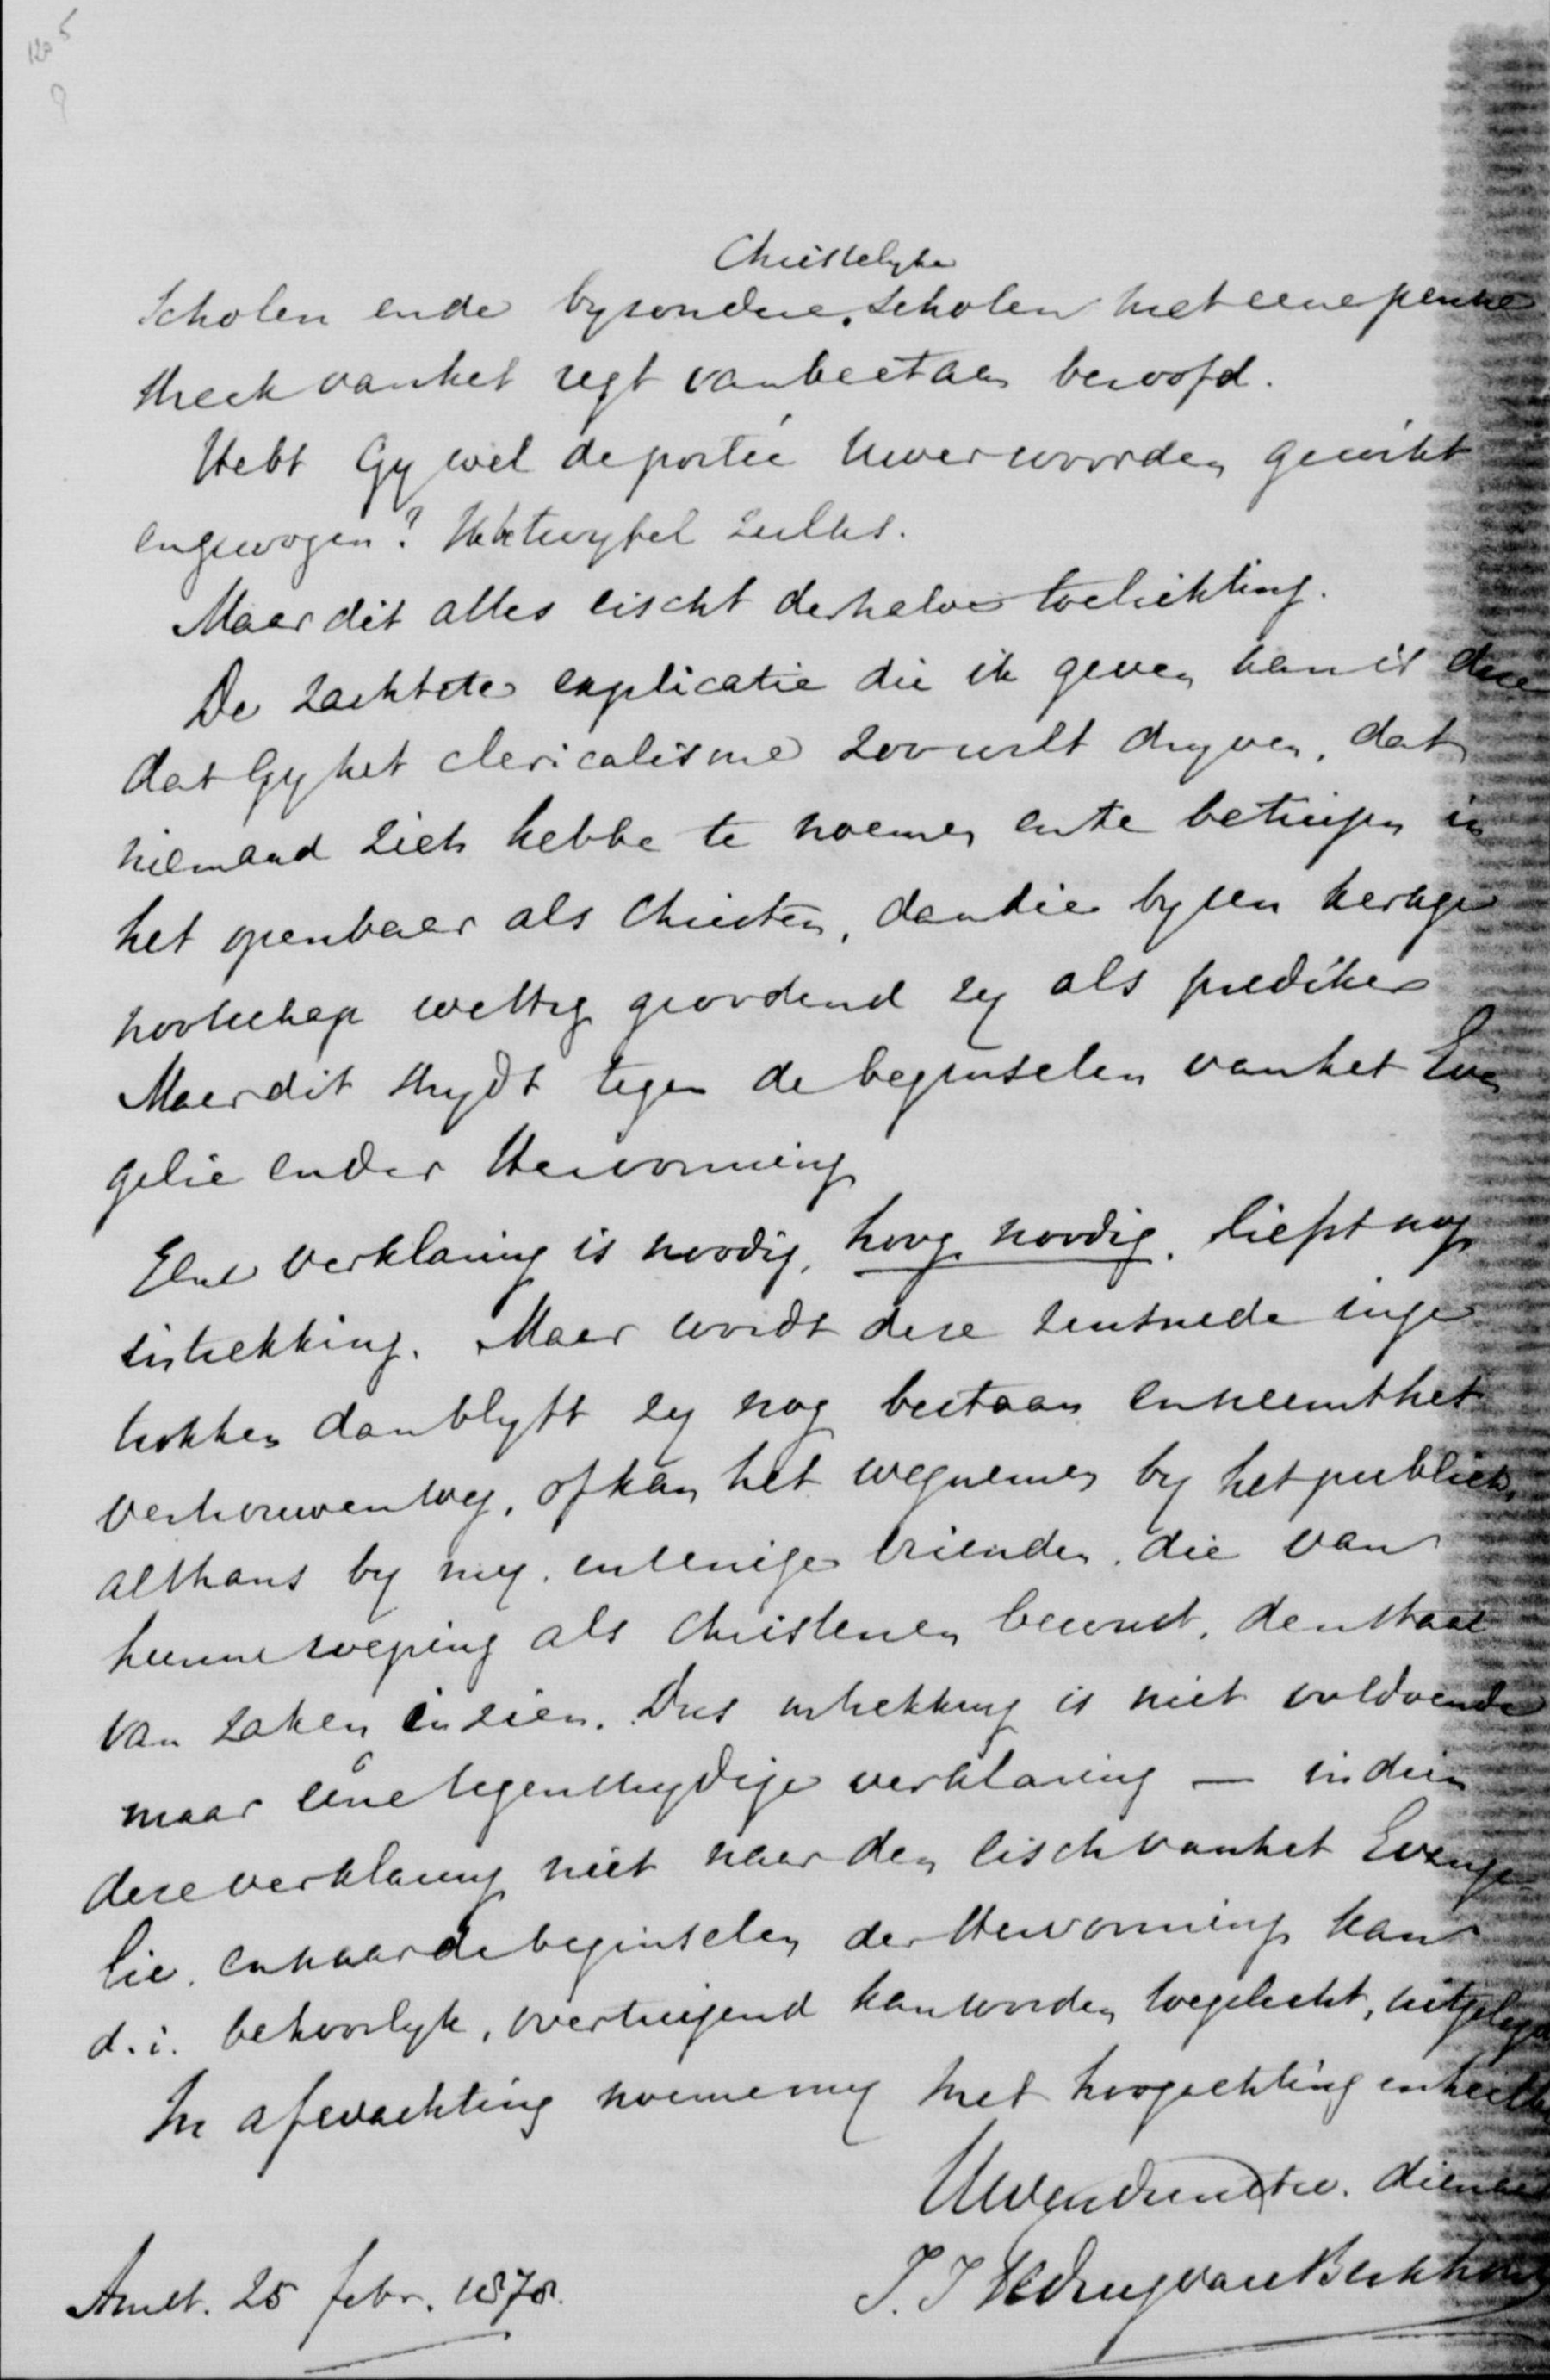 120 5
9
Christelyke
Scholen en de byzondere scholen met eene penne
streek van het regt van bestaan beroofd.
Hebt Gy wel de portée Uwer woorden gewikt
en gewogen? Ik betwyfel zulks.
Maar dit alles eischt derhalve toelichting.
De zachtste explicatie die ik geven kan is deze
dat Gy het clericalisme zoo wilt dryven, dat
niemand zich hebbe te noemen en te betuigen in
het openbaar als Christen, dan die by zyn kerkge
nootschap wettig geordend zy als prediker
Maar dit strydt tegen de beginselen van het Evan
gelie en der Hervorming
Eene verklaring is noodig, hoog noodig. liefst nog
intrekking. Maar wordt deze zinsnede inge
trokken dan blyft zy nog bestaan en neemt het
vertrouwen weg, of kan het wegnemen by het publiek,
althans by my, en eenige vrienden, die van
hunne roeping als Christenen bewust, den staat
van zaken inzien. Dus intrekking is niet voldoende
maar eene tegenstrydige verklaring — indien
deze verklaring niet naar den eisch van het Evange-
lie, en naar de beginselen der Hervorming kan
d.i. behoorlyk, overtuigend kan worden toegelicht, uitgelegd
In afwachting noeme my met hoogachting en heilb
Uw dw. dienaar
J. J. Teding van Berkhout
Amst. 25 febr. 1878.